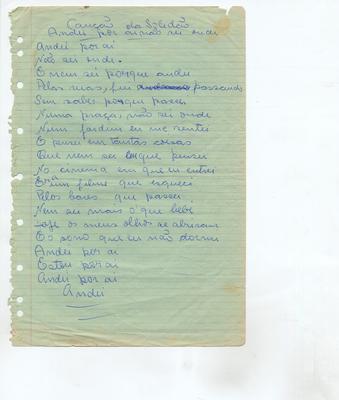 Canção da Solidão
Andei por aí não sei onde
Andei por aí
Não sei onde.
E nem sei porque andei
Pelas ruas, fui passando
Sem saber porque passei
Numa praça, não sei onde
Num jardim eu me sentei
E pensei em tantas coisas
Que nem sei no que pensei
No cinema em que eu entrei
Era um filme que esqueci
Pelos bares que passei
Nem sei mais o que bebi
os meus olhos se abriram
E o sono que eu não dormi
Andei por aí
Estou por aí
Andei por aí
Andei